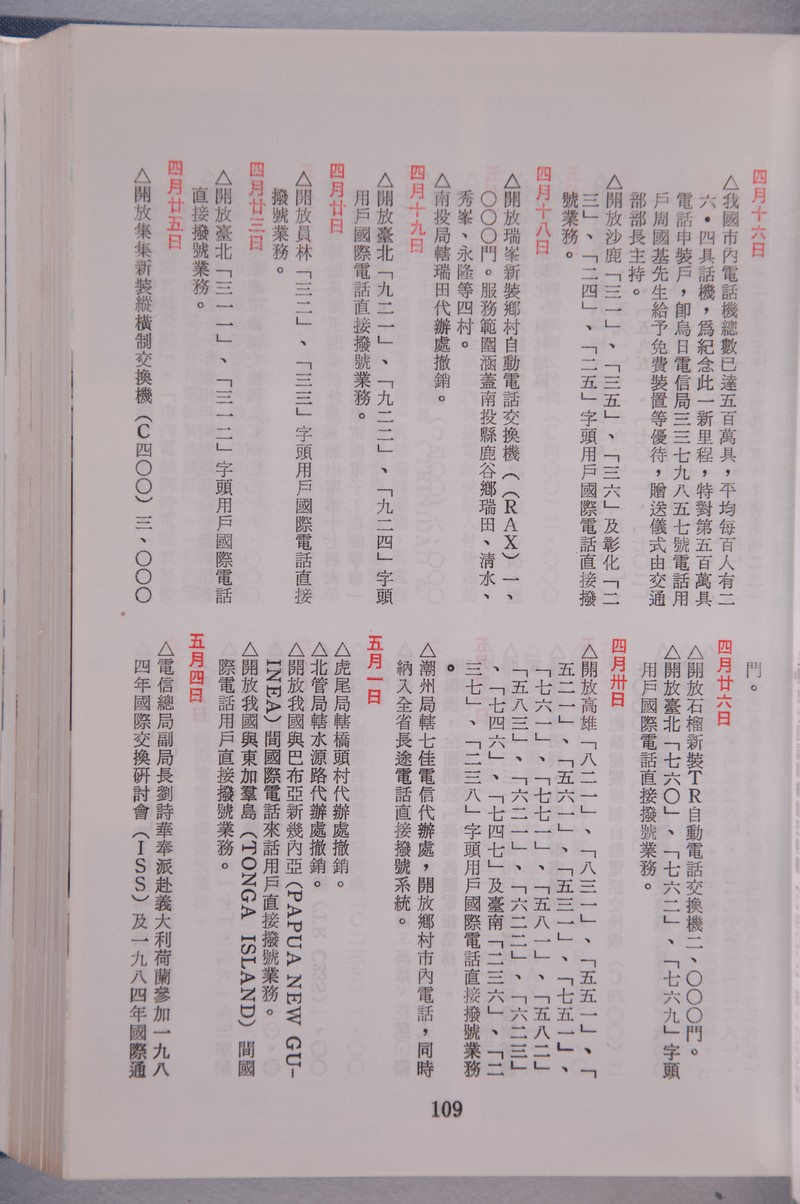 四月十六日
△我國市內電話機總數已達五百萬具，平均每百人有二
六・四具話機，爲紀念此一新里程，特對第五百萬具
電話申裝戶，卽烏日電信局三三七九八五七號電話用
戶周國基先生給予免費裝置等優待，贈送儀式由交通
部部長主持。
△開放沙鹿「三一」、「三五」、「三六」及彰化「二
三」、「二四」、「二五」字頭用戶國際電話直接撥
號業務。
四月十八日
△開放瑞峯新裝鄉村自動電話交換機（（RAX）一、
〇〇〇門。服務範圍涵蓋南投縣鹿谷鄉瑞田、清水、
秀峯、永隆等四村。
△南投局轄瑞田代辦處撤銷。
四月十九日
△開放臺北「九二一」、「九二二」、「九二四」字頭
用戶國際電話直接撥號業務。
四月廿日
△開放員林「三二」、「三三」字頭用戶國際電話直接
撥號業務。
四月廿三日
△開放臺北「三一一」、「三一二」字頭用戶國際電話
直接撥號業務。
四月廿五日
△開放集集新裝縱橫制交換機（C四〇〇）三、〇〇〇
門。
四月廿六日
△開放石榴新裝TR自動電話交換機二、〇〇〇門。
△開放臺北「七六〇」、「七六二」、「七六九」字頭
用戶國際電話直接撥號業務。
四月卅日
△開放高雄「八二一」、「八三一」、「五五一」、「
五二一」、「五六一」、「五三一」、「七五一」、
「七六一」、「七七一」、「五八一」、「五八二」
「五八三」、「六二一」、「六二二」、「六二三」
、「七四六」、「七四七」及臺南「二三六」、「二
三七」、「二三八」字頭用戶國際電話直接撥號業務
。
△潮州局轄七佳電信代辦處，開放鄉村市內電話，同時
納入全省長途電話直接撥號系統。
五月一日
△虎尾局轄橋頭村代辦處撤銷。
△北管局轄水源路代辦處撤銷。
△開放我國與巴布亞新幾內亞（PAPUA NEW GU-
INEA）間國際電話來話用戶直接撥號業務。
△開放我國與東加羣島（TONGA ISLAND）間國
際電話用戶直接撥號業務。
五月四日
△電信總局副局長劉詩華奉派赴義大利荷蘭參加一九八
四年國際交換研討會（ISS）及一九八四年國際通
109